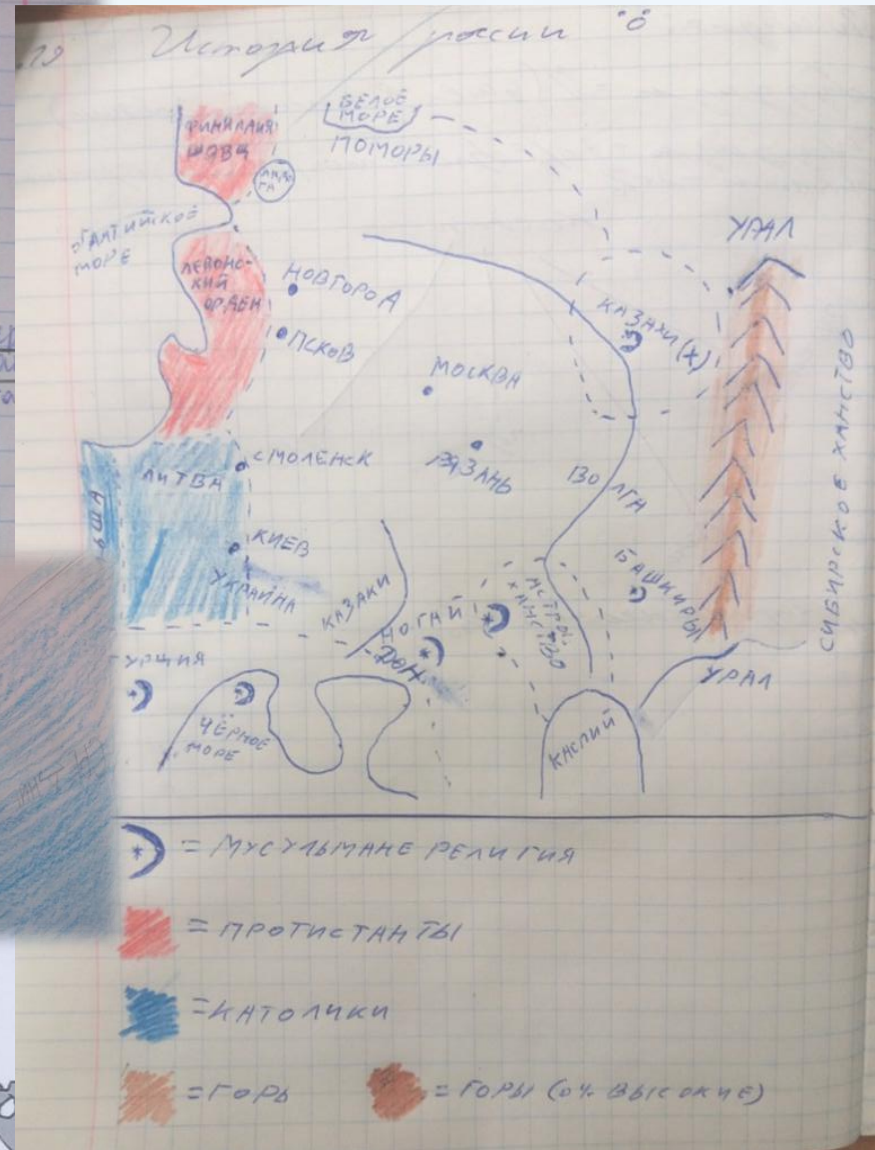 19
История России
БЕЛОЕ
МОРЕ
ПОМОРЫ
ФИНЛЯНДИЯ
ШВЕЦ
БАЛТИЙСКОЕ
МОРЕ
ЛЕВОНС-
КИЙ
ОРДЕН
НОВГОРОД
ПСКОВ
МОСКВА
РЯЗАНЬ
УРАЛ
КАЗАХИ(Х)
СИБИРСКОЕ ХАНСТВО
СМОЛЕНСК
ЛИТВА
ЬША
ВОЛГА
КИЕВ
УКРАИНА
КАЗАКИ
НОГАЙ
ДОН
АСТРА.
ХАНСТВО
БАШКИРЫ
УРАЛ
ТУРЦИЯ
ЧЁРНОЕ
МОРЕ
КАСПИЙ
= МУСУЛЬМАНЕ РЕЛИГИЯ
= ПРОТИСТАНТЫ
= КАТОЛИКИ
= ГОРЫ
= ГОРЫ (оч. ВЫСОКИЕ)